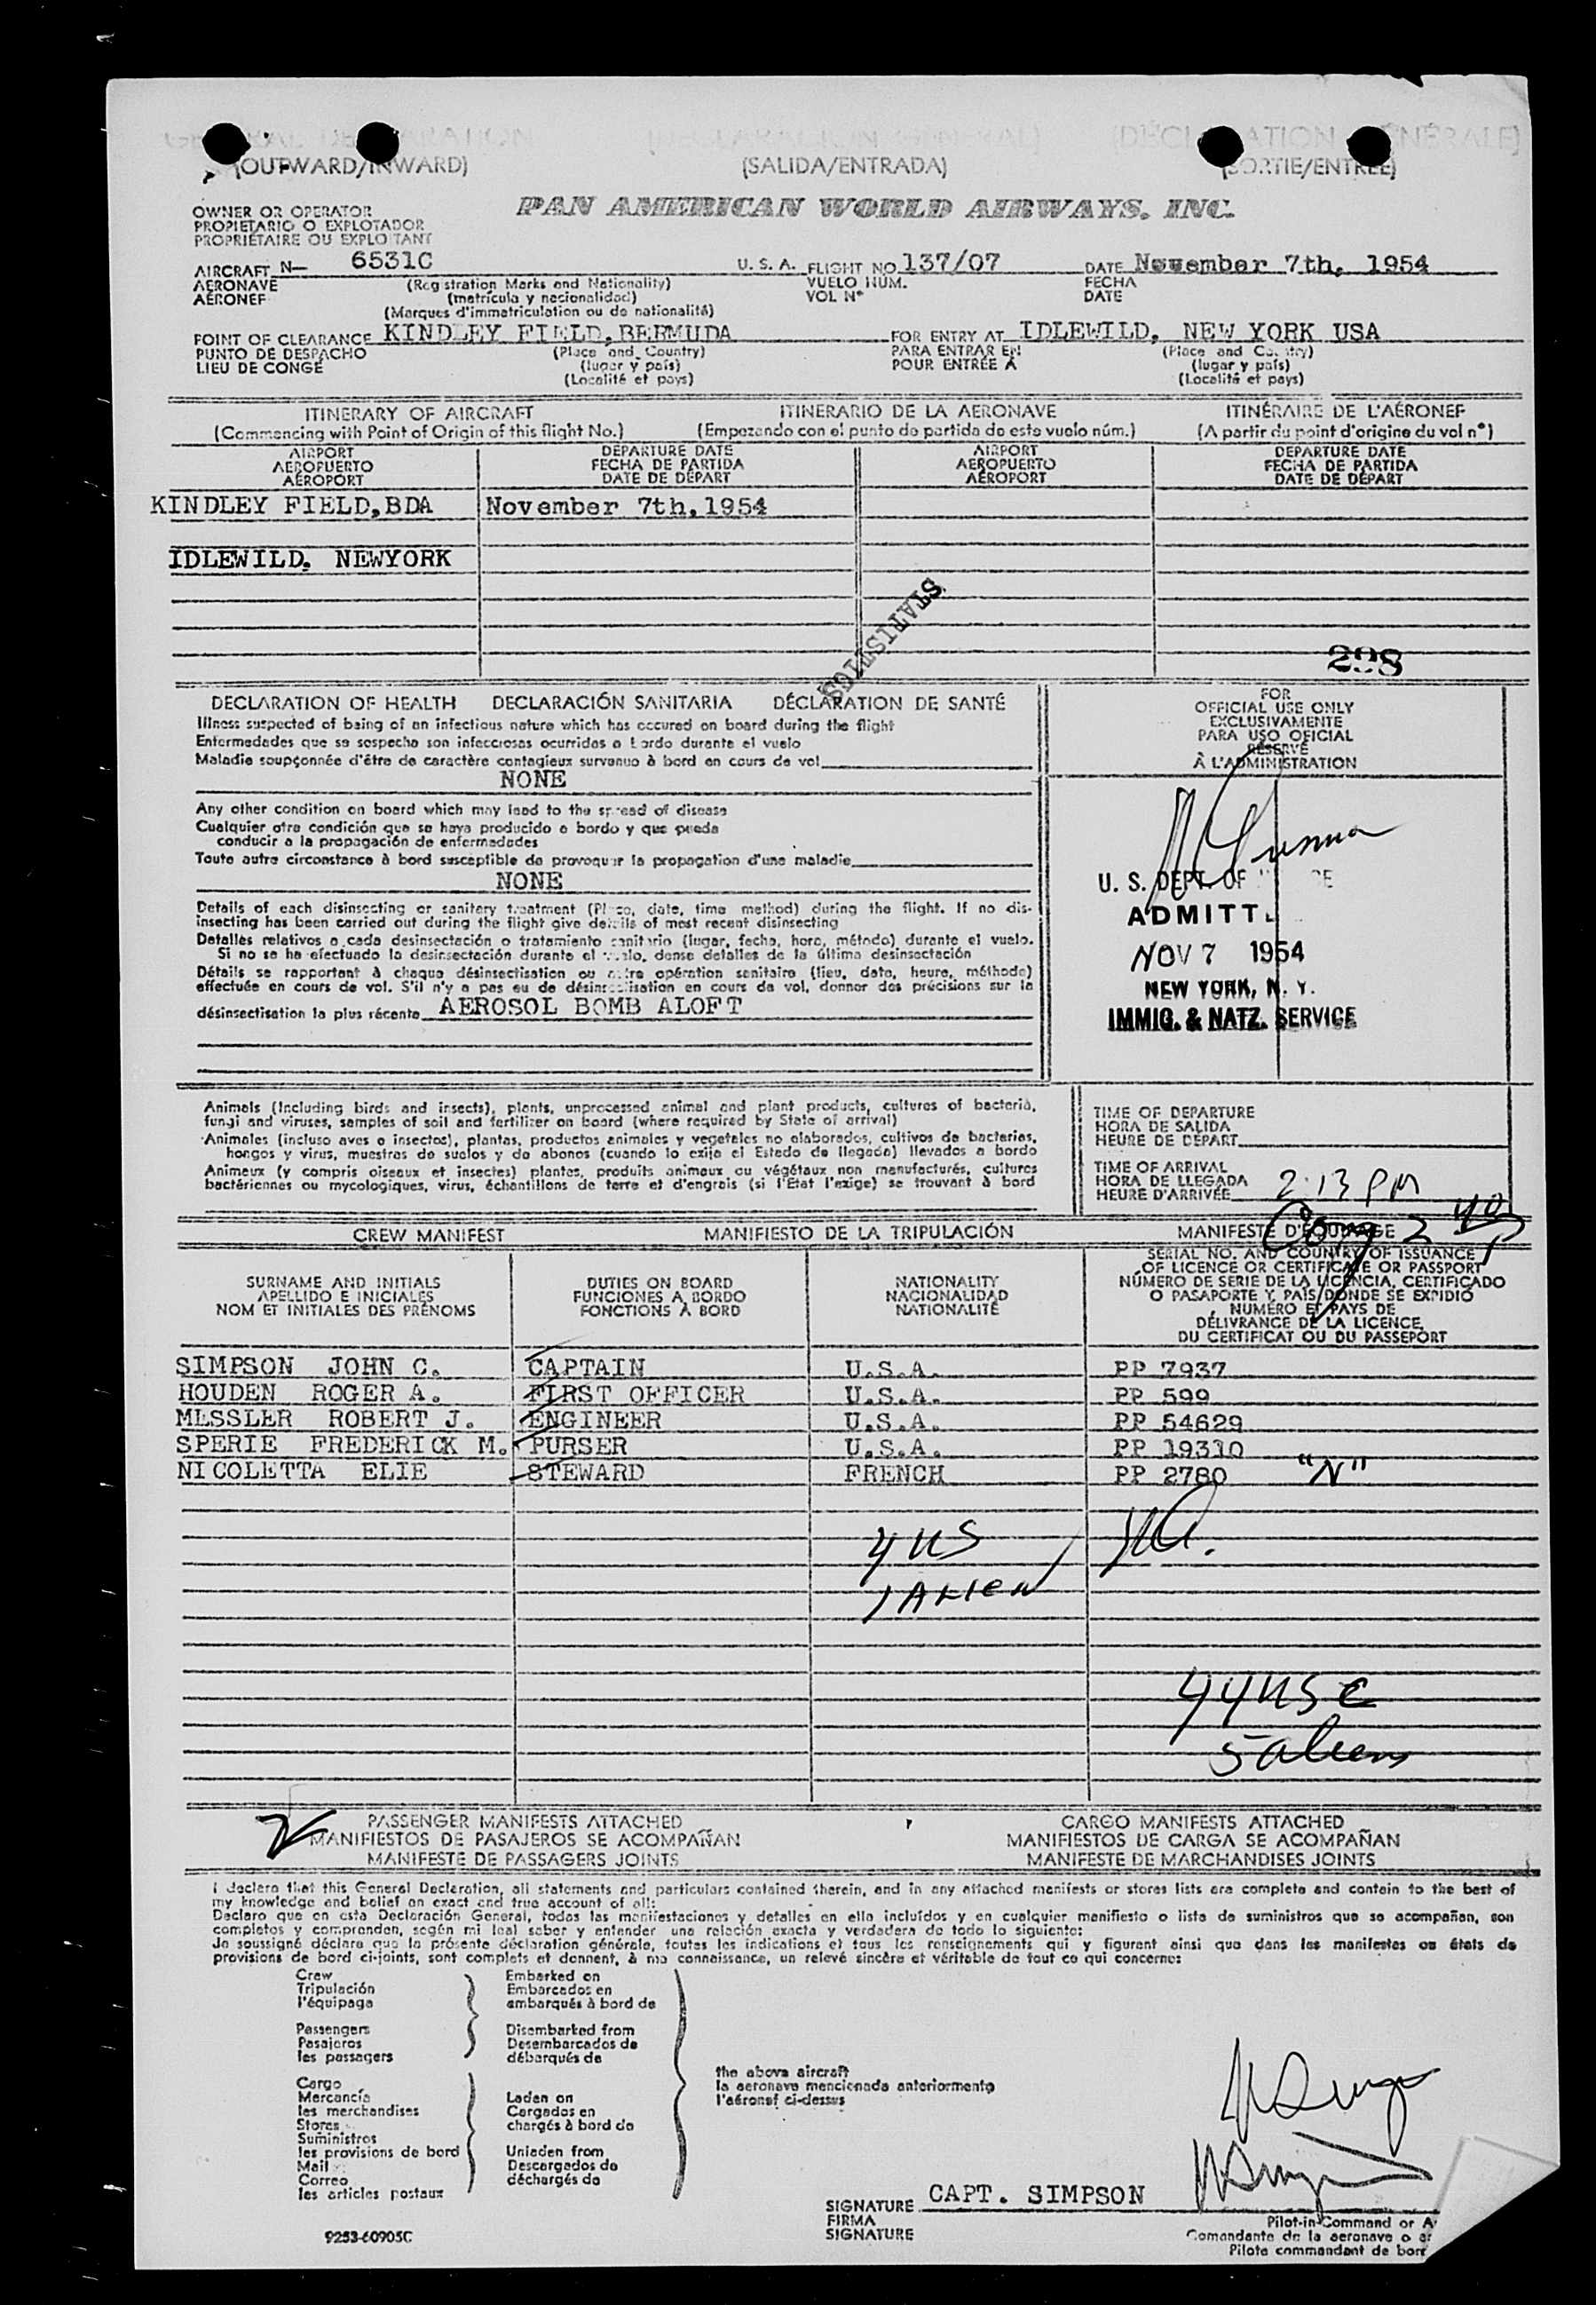 (OUTWARD/INWARD) (SALIDA/ENTRADA) (SORTIE/ENTRÉE)
PAN AMERICAN WORLD AIRWAYS, INC.
OWNER OR OPERATOR
PROPIETARIO O EXPLOTADOR
PROPRIÉTAIRE OU EXPLOITANT
AIRCRAFT N— 6531C U. S. A. FLIGHT NO 137/07 DATE November 7th, 1954
AERONAVE (Registration Marks and Nationality) VUELO NÚM. FECHA
AÉRONEF (matrícula y nacionalidad) VOL Nº DATE
(Marques d'immatriculation ou de nationalité)
POINT OF CLEARANCE KINDLEY FIELD, BERMUDA FOR ENTRY AT IDLEWILD, NEW YORK USA
PUNTO DE DESPACHO (Place and Country) PARA ENTRAR EN (Place and Country)
LIEU DE CONGÉ (lugar y país) POUR ENTRÉE À (lugar y país)
(Localité et pays) (Localité et pays)
ITINERARY OF AIRCRAFT ITINERARIO DE LA AERONAVE ITINÉRAIRE DE L'AÉRONEF
(Commencing with Point of Origin of this flight No.) (Empezando con el punto de partida de este vuelo núm.) (A partir du point d'origine du vol nº)
AIRPORT DEPARTURE DATE AIRPORT DEPARTURE DATE
AEROPUERTO FECHA DE PARTIDA AEROPUERTO FECHA DE PARTIDA
AÉROPORT DATE DE DÉPART AÉROPORT DATE DE DÉPART
KINDLEY FIELD,BDA November 7th,1954
IDLEWILD. NEWYORK
STATISTICS
298
DECLARATION OF HEALTH DECLARACIÓN SANITARIA DÉCLARATION DE SANTÉ
Illness suspected of being of an infectious nature which has occured on board during the flight
Enfermedades que se sospecha son infecciosas ocurridas a bordo durante el vuelo
Maladie soupçonnée d'être de caractère contagieux survenue à bord en cours de vol
NONE
Any other condition on board which may lead to the spread of disease
Cualquier otra condición que se haya producido a bordo y que pueda
conducir a la propagación de enfermedades
Toute autre circonstance à bord susceptible de provoquer la propagation d'une maladie
NONE
Details of each disinsecting or sanitary treatment (Place, date, time method) during the flight. If no dis-
insecting has been carried out during the flight give details of most recent disinsecting
Detalles relativos a cada desinsectación o tratamiento sanitario (lugar, fecha, hora, método) durante el vuelo.
Si no se ha efectuado la desinsectación durante el vuelo, dense detalles de la última desinsectación
Détails se rapportant à chaque désinsectisation ou autre opération sanitaire (lieu, date, heure, méthode)
effectuée en cours de vol. S'il n'y a pas eu de désinsectisation en cours de vol, donner des précisions sur la
désinsectisation la plus récente AEROSOL BOMB ALOFT
FOR
OFFICIAL USE ONLY
EXCLUSIVAMENTE
PARA USO OFICIAL
RÉSERVÉ
À L'ADMINISTRATION
U. S. DEPT. OF
ADMITT
NOV 7 1954
NEW YORK, N. Y.
IMMIG. & NATZ. SERVICE
Animals (Including birds and insects), plants, unprocessed animal and plant products, cultures of bacteria,
fungi and viruses, samples of soil and fertilizer on board (where required by State of arrival)
Animales (incluso aves o insectos), plantas, productos animales y vegetales no elaborados, cultivos de bacterias,
hongos y virus, muestras de suelos y de abonos (cuando lo exija el Estado de llegada) llevados a bordo
Animaux (y compris oiseaux et insectes) plantes, produits animaux ou végétaux non manufacturés, cultures
bactériennes ou mycologiques, virus, échantillons de terre et d'engrais (si l'Etat l'exige) se trouvant à bord
TIME OF DEPARTURE
HORA DE SALIDA
HEURE DE DÉPART
TIME OF ARRIVAL
HORA DE LLEGADA
HEURE D'ARRIVÉE 2:13 PM
CREW MANIFEST MANIFIESTO DE LA TRIPULACIÓN MANIFESTE D'ÉQUIPAGE
SURNAME AND INITIALS DUTIES ON BOARD NATIONALITY
APELLIDO E INICIALES FUNCIONES A BORDO NACIONALIDAD
NOM ET INITIALES DES PRÉNOMS FONCTIONS À BORD NATIONALITÉ
SERIAL NO. AND COUNTRY OF ISSUANCE
OF LICENCE OR CERTIFICATE OR PASSPORT
NÚMERO DE SERIE DE LA LICENCIA, CERTIFICADO
O PASAPORTE Y PAÍS DONDE SE EXPIDIÓ
NUMÉRO ET PAYS DE
DÉLIVRANCE DE LA LICENCE,
DU CERTIFICAT OU DU PASSEPORT
SIMPSON JOHN C. CAPTAIN U.S.A. PP 7937
HOUDEN ROGER A. FIRST OFFICER U.S.A. PP 599
MESSLER ROBERT J. ENGINEER U.S.A. PP 54629
SPERIE FREDERICK M. PURSER U.S.A. PP 19310
NICOLETTA ELIE STEWARD FRENCH PP 2780 "N"
4 US
1 ALIEN
44 USC
5 aliens
PASSENGER MANIFESTS ATTACHED CARGO MANIFESTS ATTACHED
MANIFIESTOS DE PASAJEROS SE ACOMPAÑAN MANIFIESTOS DE CARGA SE ACOMPAÑAN
MANIFESTE DE PASSAGERS JOINTS MANIFESTE DE MARCHANDISES JOINTS
I declare that this General Declaration, all statements and particulars contained therein, and in any attached manifests or stores lists are complete and contain to the best of
my knowledge and belief an exact and true account of all:
Declaro que en esta Declaración General, todas las manifestaciones y detalles en ella incluídos y en cualquier manifiesto o lista de suministros que se acompañan, son
completos y comprenden, según mi leal saber y entender una relación exacta y verdadera de todo lo siguiente:
Je soussigné déclare que la présente déclaration générale, toutes les indications et tous les renseignements qui y figurent ainsi que dans les manifestes ou états de
provisions de bord ci-joints, sont complets et donnent, à ma connaissance, un relevé sincère et véritable de tout ce qui concerne:
Crew Embarked on
Tripulación Embarcados en
l'équipage embarqués à bord de
Passengers Disembarked from
Pasajeros Desembarcados de
les passagers débarqués de
the above aircraft
la aeronave mencionada anteriormente
l'aéronef ci-dessus
Cargo
Mercancía Laden on
les merchandises Cargados en
Stores chargés à bord de
Suministros
les provisions de bord Unladen from
Mail Descargados de
Correo déchargés de
les articles postaux
SIGNATURE CAPT. SIMPSON
FIRMA Pilot-in-Command or
SIGNATURE Comandante de la aeronave o
Pilote commandant de bord
9253-60905C